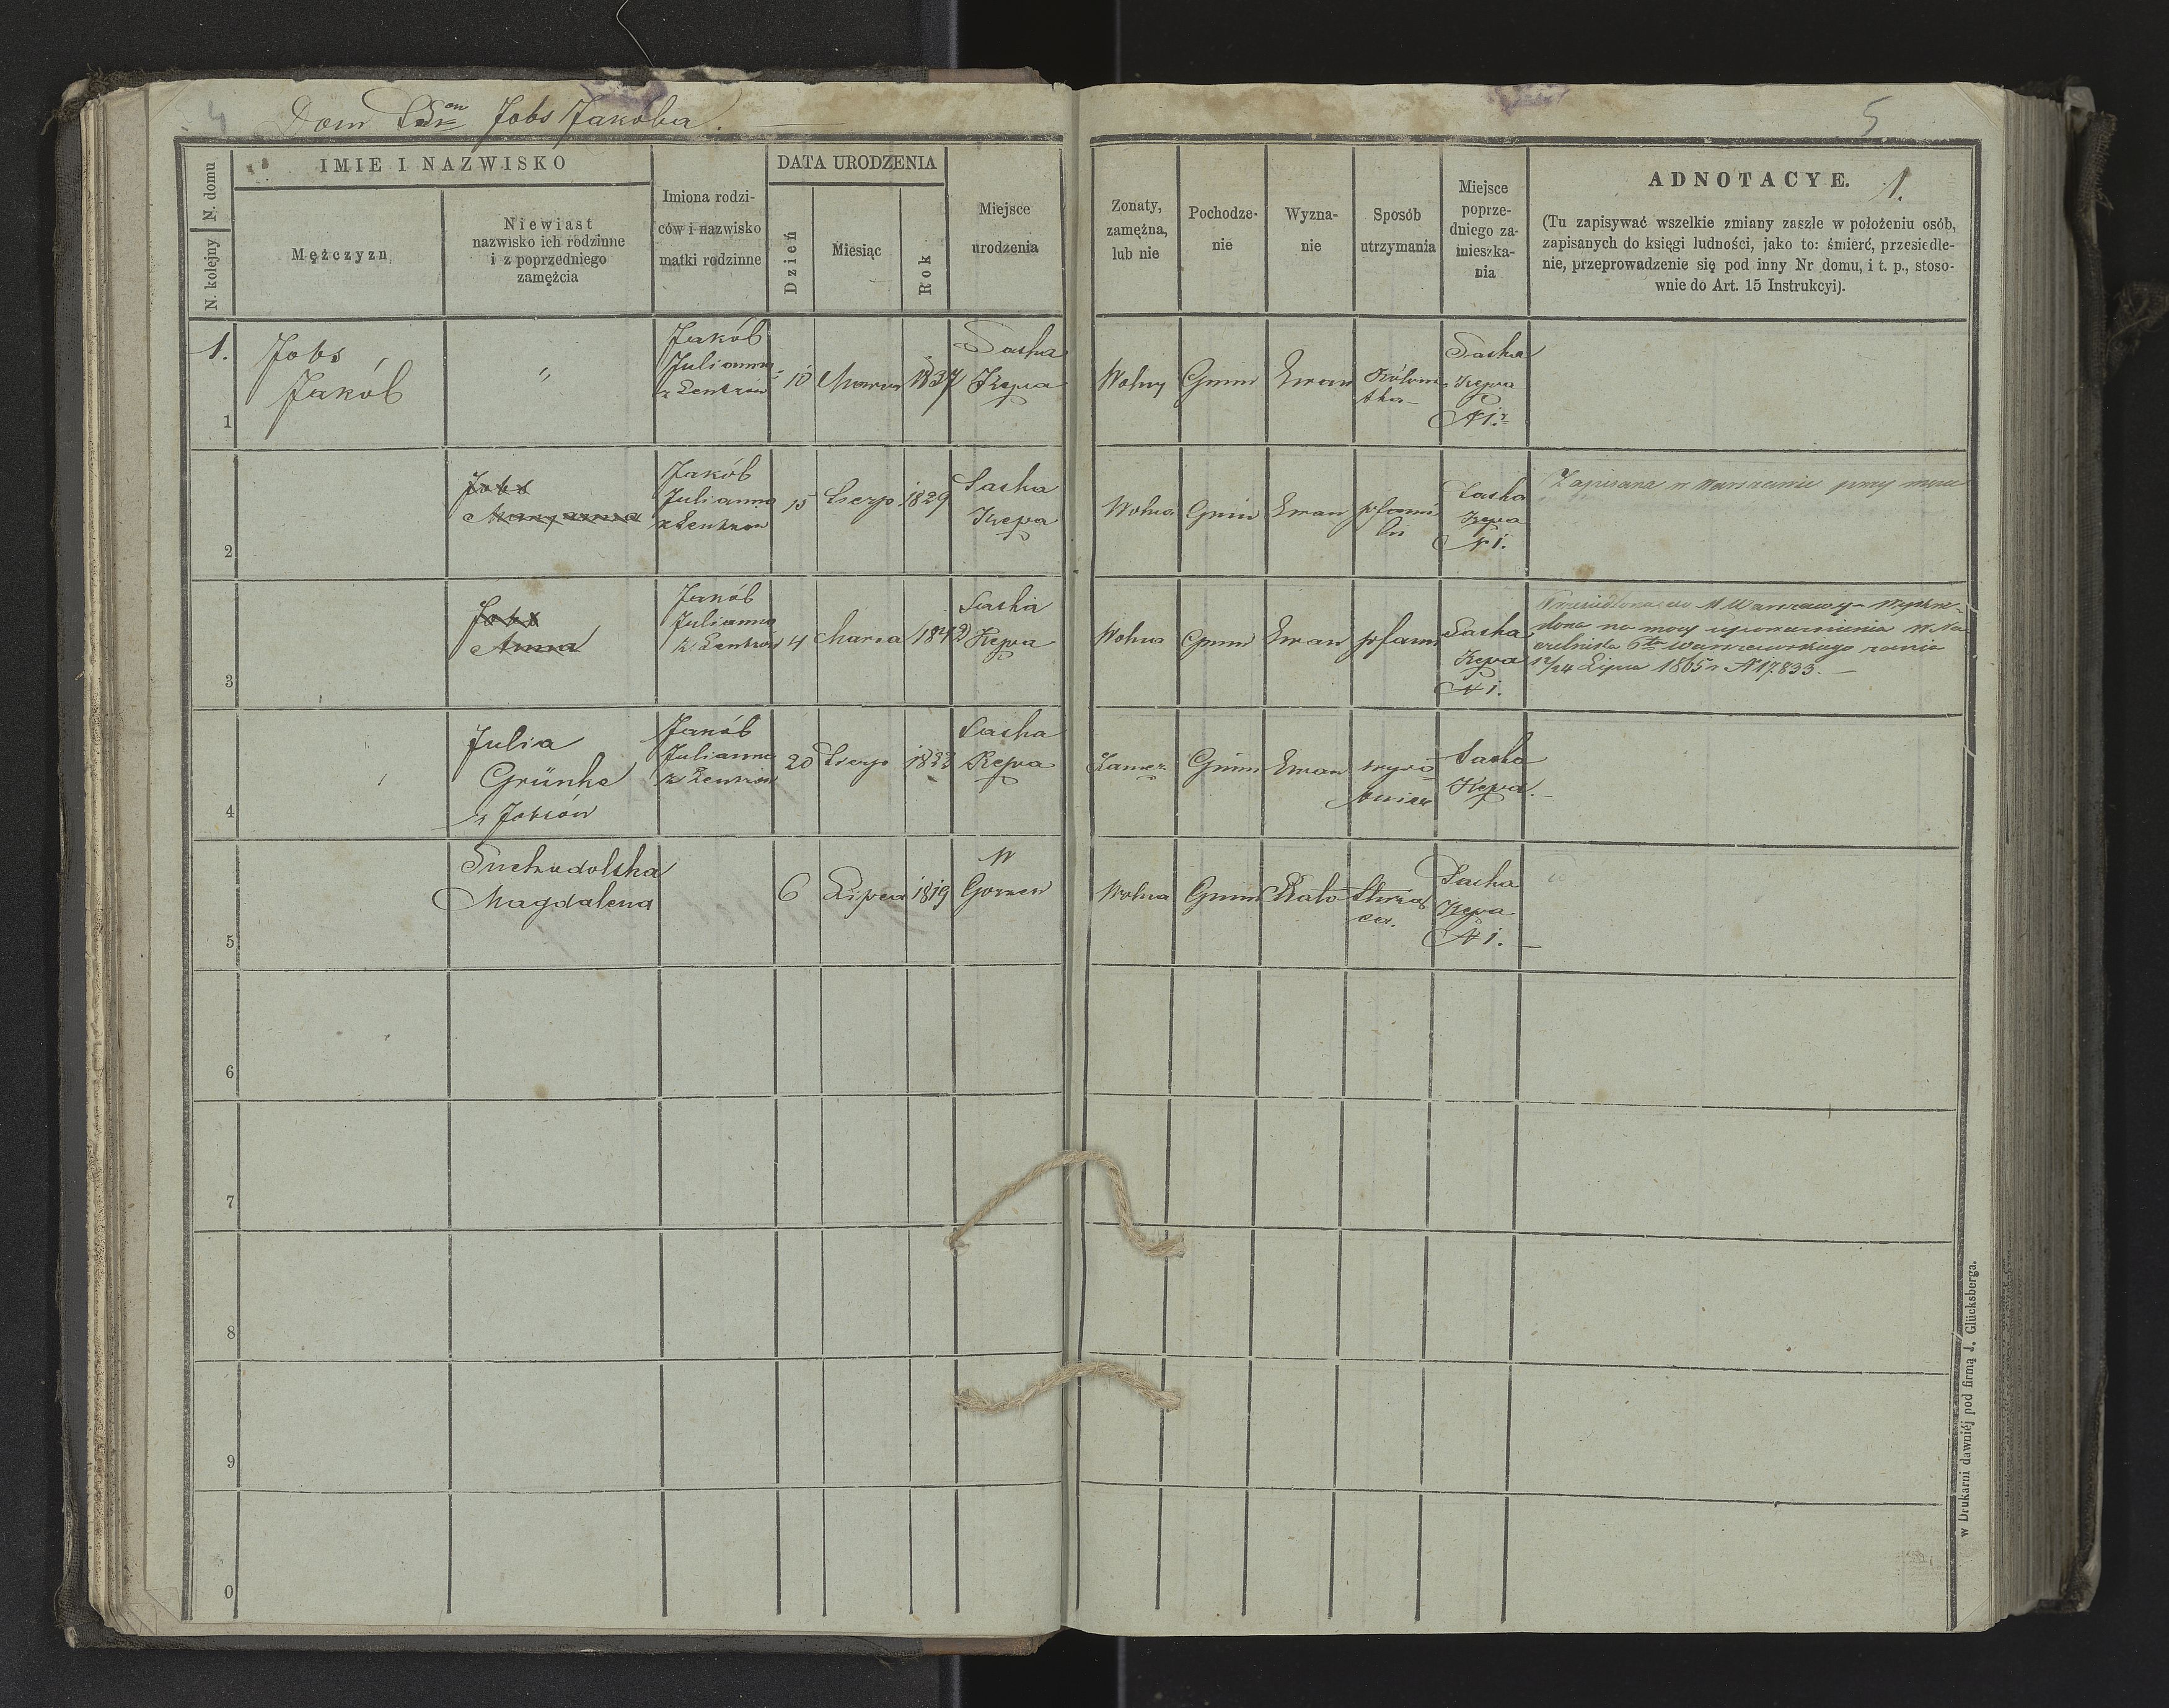 4
Dom Jobs Jakóba.
5
N. domu
N. kolejny
IMIE I NAZWISKO
Mężczyzn
Niewiast
nazwisko ich rodzinne
i z poprzedniego
zamężcia
Imiona rodzi-
ców i nazwisko
matki rodzinne
DATA URODZENIA
Dzień
Miesiąc
Rok
Miejsce
urodzenia
Zonaty,
zamężna,
lub nie
Pochodze-
nie
Wyzna-
nie
Sposób
utrzymania
Miejsce
poprze-
dniego za-
mieszka-
nia
ADNOTACYE.
1.
(Tu zapisywać wszelkie zmiany zaszłe w położeniu osób,
zapisanych do księgi ludności, jako to: śmierć, przesiedle-
nie, przeprowadzenie się pod inny Nr domu, i t. p., stoso-
wnie do Art. 15 Instrukcyi).
1.
1
Jobs
Jakób
"
Jakób
Julianna
z Lentzów
10
Marca
1837
Saska
Kępa
Wolny
Gmin
Ewan
Saska
Kępa
N 1.
2
Jobs
Maryanna
Jakób
Julianna
z Lentzow
15
Sierp.
1829
Saska
Kępa
Wolna
Gmin
Ewan
p. fami
lii
Saska
Kępa
N 1.
Zapisana w Warszawie przy mężu
3
Jobs
Anna
Jakób
Julianna
z Lentzow
4
Marca
1842
Saska
Kępa
Wolna
Gmin
Ewan
p. fami
Saska
Kępa
N 1.
Przesiedlona do M Warszawy
na mocy upoważnienia W Na
czelnika Warszawskiego
12/24 Lipca 1865 r N 17.833.
4
Julia
Grünke
z Jobsów
Jakób
Julianna
z Lentzów
20
Sierp
1833
Saska
Kępa
Zamęż.
Gmin
Ewan
wyro
bnica
Saska
Kępa.
5
Suchodolska
Magdalena
6
Lipca
1819
W
Wolna
Gmin
Kato
Saska
Kępa
N 1.
6
7
8
9
0
w Drukarni dawniéj pod firmą J. Glücksberga.